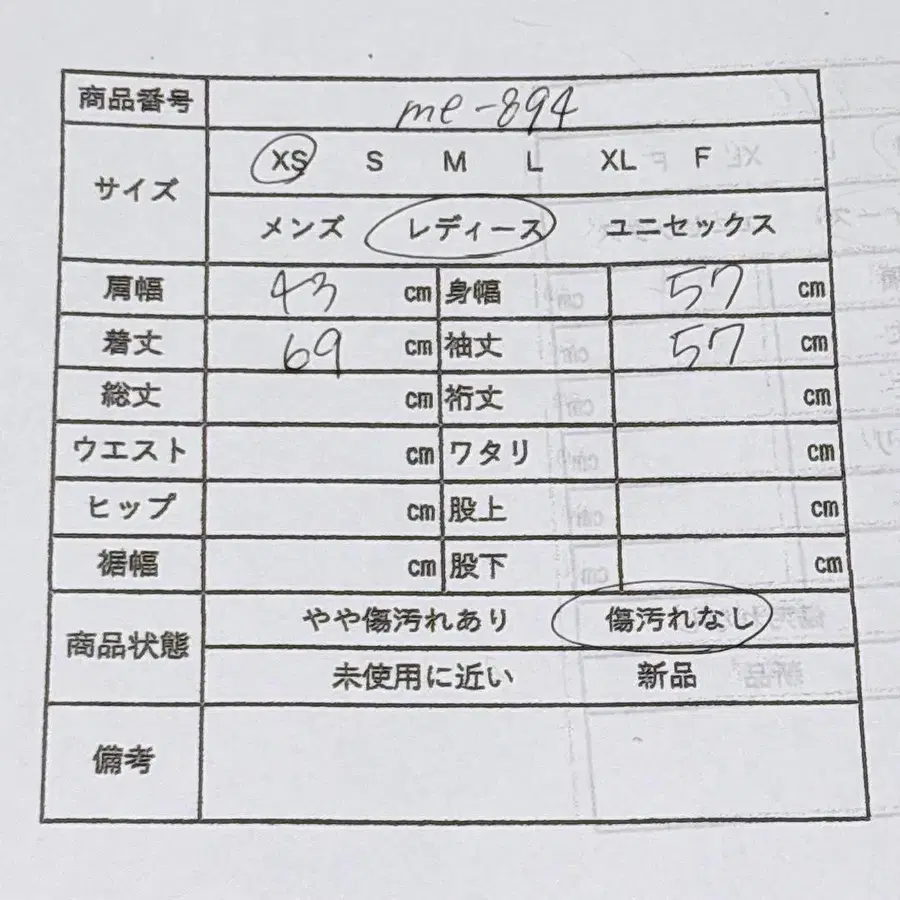 商品番号 me-894
サイズ XS S M L XL F
メンズ レディース ユニセックス
肩幅 43 cm 身幅 57 cm
着丈 69 cm 袖丈 57 cm
総丈 cm 裄丈 cm
ウエスト cm ワタリ cm
ヒップ cm 股上 cm
裾幅 cm 股下 cm
商品状態 やや傷汚れあり 傷汚れなし
未使用に近い 新品
備考